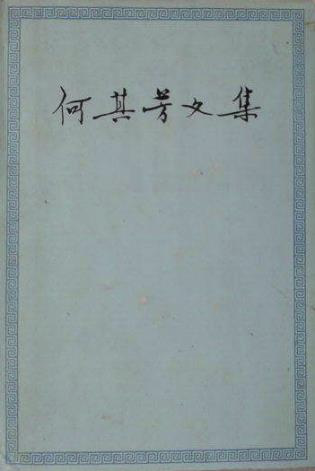 何其芳文集